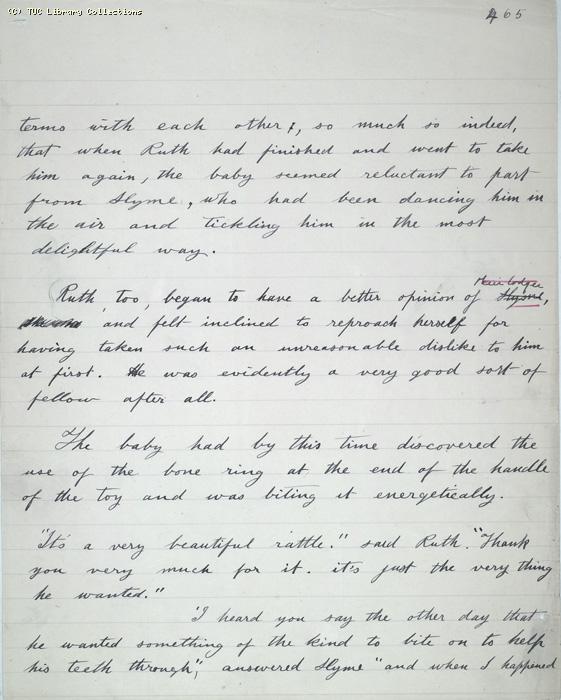 (C) TUC Library Collections
465
terms with each other, so much so indeed,
that when Ruth had finished and went to take
him again, the baby seemed reluctant to part
from Slyme, who had been dancing him in
the air and tickling him in the most
delightful way.
their lodger
Ruth, too, began to have a better opinion of Slyme,
and felt inclined to reproach herself for
having taken such an unreasonable dislike to him
at first. He was evidently a very good sort of
fellow after all.
The baby had by this time discovered the
use of the bone ring at the end of the handle
of the toy and was biting it energetically.
"It's a very beautiful rattle." said Ruth. "Thank
you very much for it. it's just the very thing
he wanted."
'I heard you say the other day that
he wanted something of the kind to bite on to help
his teeth through", answered Slyme "and when I happened